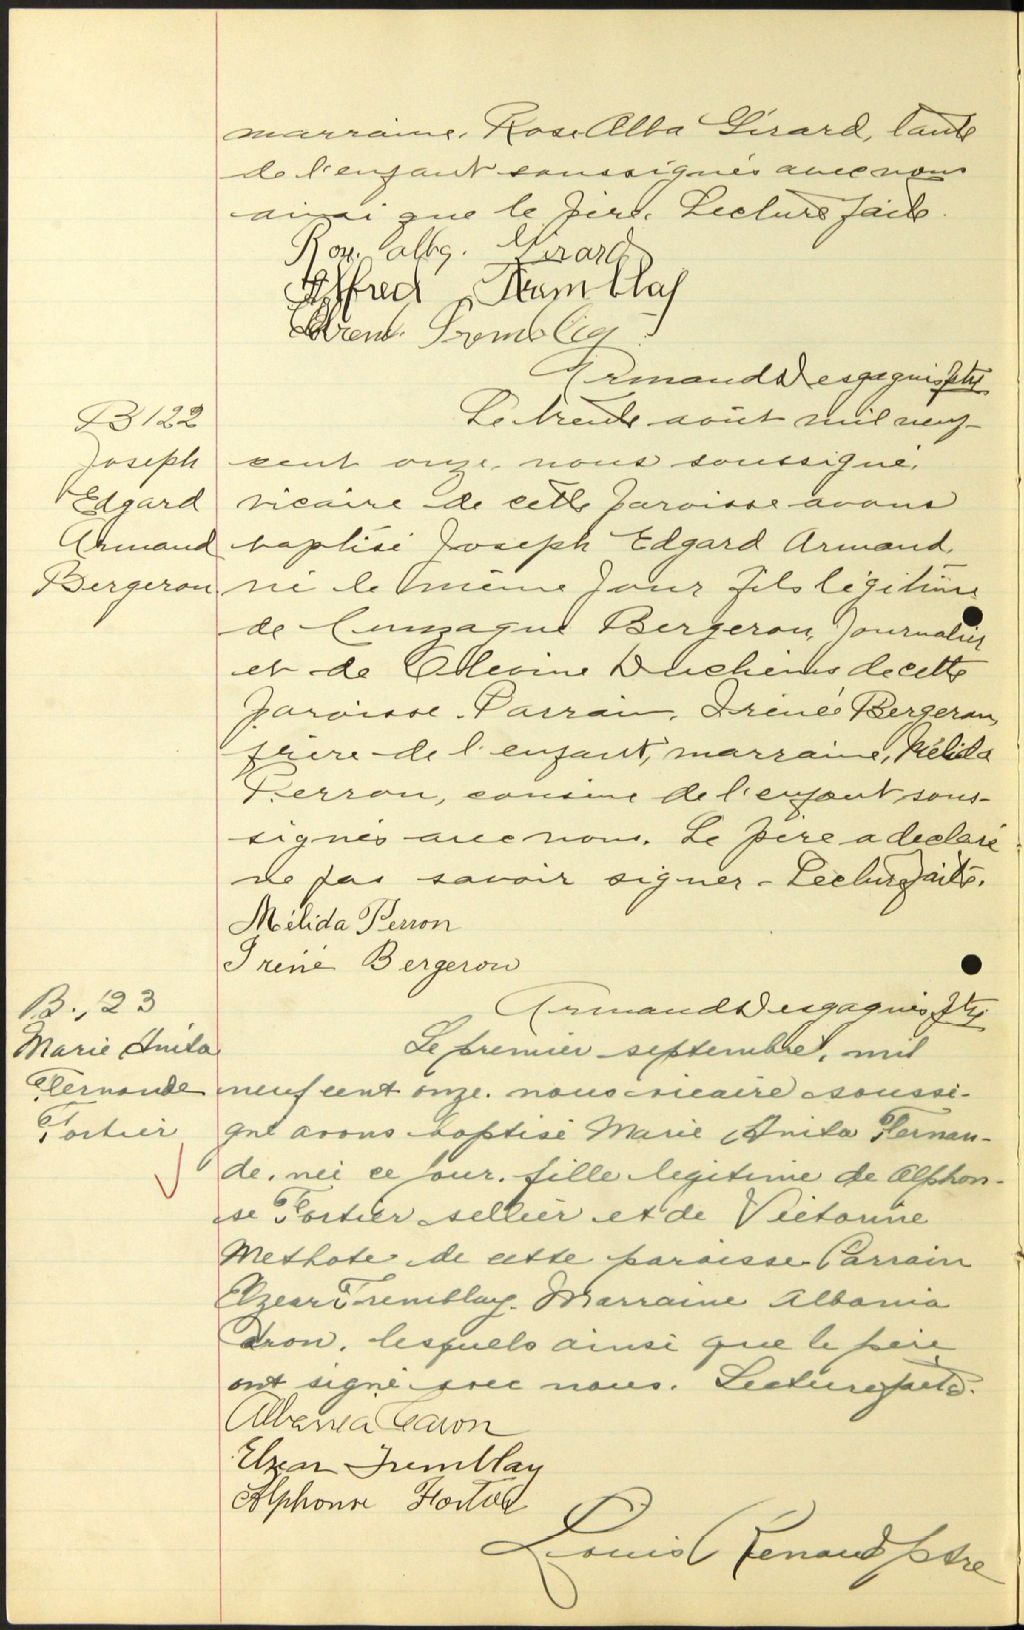 marraine, Rose Alba Girard, tante
de l'enfant soussignés avec nous
ainsi que le père. Lecture faite.
Rose alba. Girard
Alfred Tremblay
Tremblay
Armand Desgagnés ptre
B 122
Joseph
Edgard
Armand
Bergeron
Le trente août mil neuf-
cent onze, nous soussigné,
vicaire de cette paroisse avons
baptisé Joseph Edgard Armand,
né le même jour fils légitime
de Gonzague Bergeron, journalier
et de Duchesne de cette
paroisse. Parrain, Irénée Bergeron,
frère de l'enfant, marraine, Mélida
Perron, cousine de l'enfant sous-
signés avec nous. Le père a declaré
ne pas savoir signer - Lecture faite.
Mélida Perron
Iréné Bergeron
Armand Desgagnés ptre
B. 123
Marie Anita
Fernande
Fortier
Le premier septembre, mil
neuf cent onze. nous vicaire soussi-
gné avons baptisé Marie Anita Fernan-
de. née ce jour. fille légitime de Alphon-
se Fortier sellier et de Victorine
Methote de cette paroisse. Parrain
Elzear Tremblay. Marraine Albania
Caron. lesquels ainsi que le père
ont signé avec nous. Lecture faite.
Albania Caron
Elzear Tremblay
Alphonse Fortier
Louis Renaud ptre